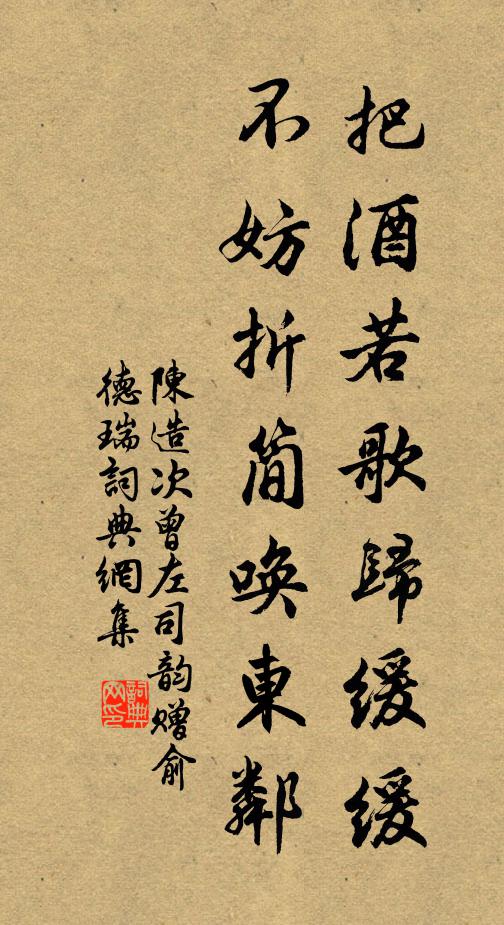 把酒若歌歸緩緩
不妨折简唤東鄰
陳造次曾左司韵贈俞
德瑞詞典網集
詞典网印